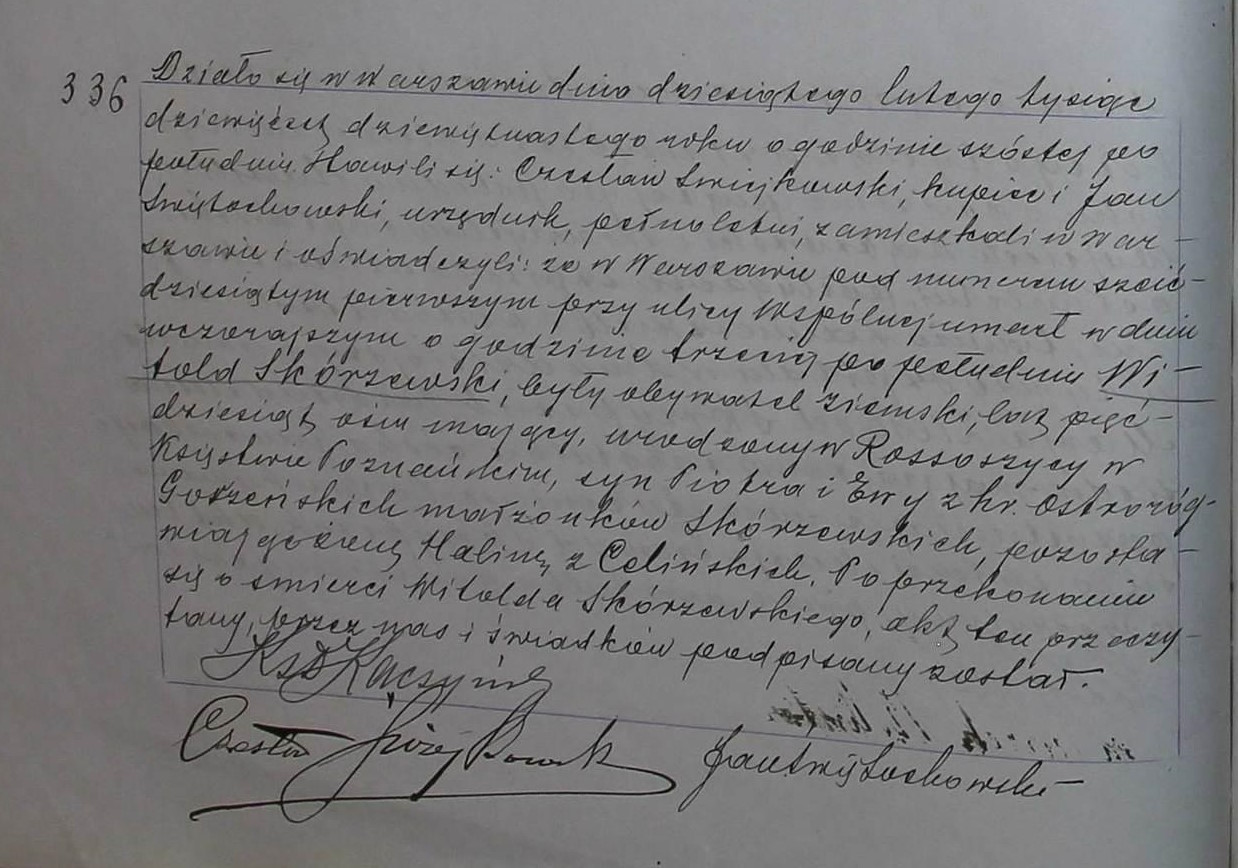 336 Działo się w Warszawie dnia dziesiątego lutego tysiąc
dziewięćset dziewiętnastego roku o godzinie szóstej po
południu. Stawili się: Czesław Śmiejkowski, kupiec i Jan
Świętochowski, urzędnik, pełnoletni, zamieszkali w War-
szawie i oświadczyli: że w Warszawie pod numerem sześć-
dziesiątym pierwszym przy ulicy Wspólnej umarł w dniu
wczorajszym o godzinie trzeciej po południu Wi-
told Skórzewski, były obywatel ziemski, lat pięć-
dziesiąt ośm mający, urodzony w Rossoszycy w
Księstwie Poznańskim, syn Piotra i Ewy z hr. Ostroróg-
Gorzeńskich małżonków Skórzewskich, pozosta-
wiając żonę Halinę z Celińskich. Po przekonaniu
się o śmierci Witolda Skórzewskiego, akt ten przeczy-
tany, przez nas i świadków podpisany został.
Czesław
Jan Świętochowski